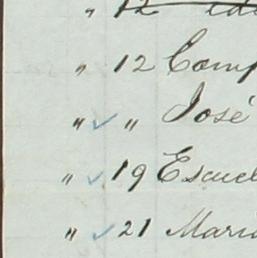 " 12
" 12 Comp
" ✓ " José
" ✓ 19 Escuel
" ✓ 21 Maria